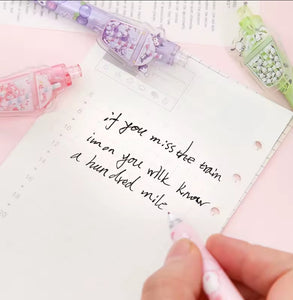 if you miss the train
im on you will know
a hundred mile